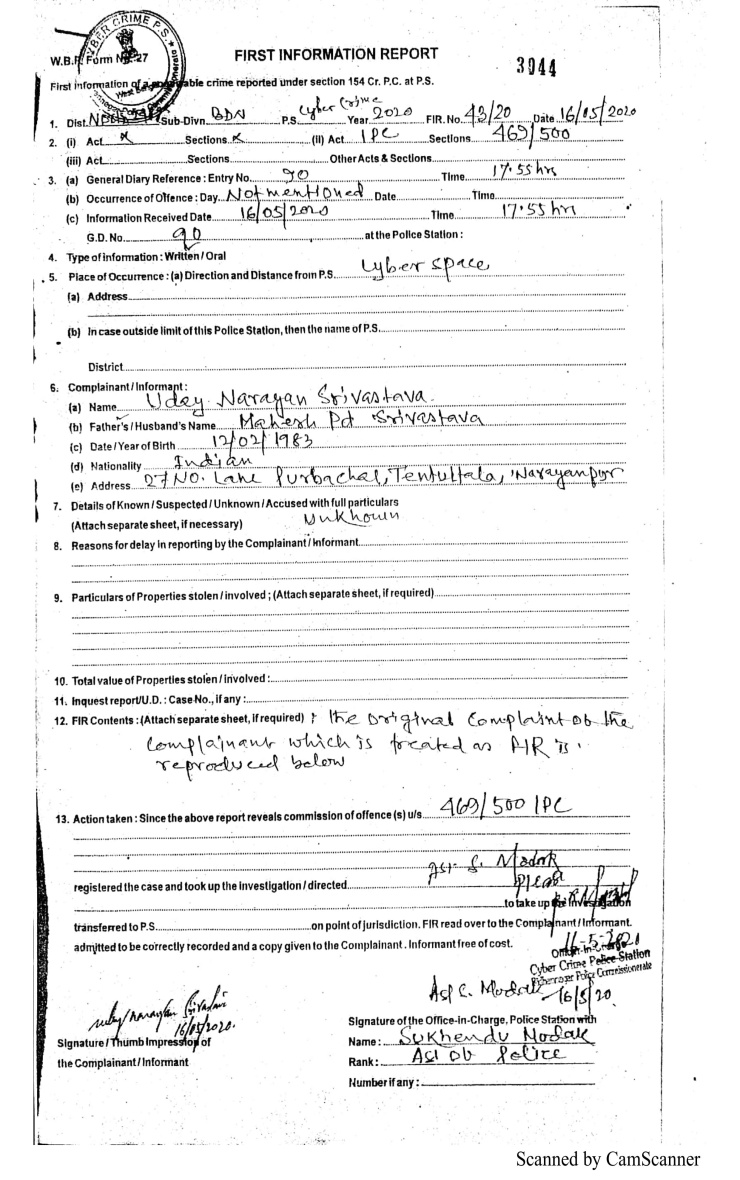 CYBER CRIME P.S.
W.B.P. Form No. 27
FIRST INFORMATION REPORT
3044
First information of a cognizable crime reported under section 154 Cr. P.C. at P.S.
1. Dist. Sub-Divn. BDN P.S. Cyber Crime Year 2020 FIR. No. 43/20 Date 16/05/2020
2. (i) Act x Sections x (II) Act IPC Sections 469/500
(iii) Act Sections Other Acts & Sections
3. (a) General Diary Reference : Entry No. 90 Time 17.55 hrs
(b) Occurrence of Offence : Day Not mentioned Date Time
(c) Information Received Date 16/05/2020 Time 17.55 hrs
G.D. No. 90 at the Police Station :
4. Type of information : Written / Oral
5. Place of Occurrence : (a) Direction and Distance from P.S. Cyber space
(a) Address
(b) In case outside limit of this Police Station, then the name of P.S.
District
6. Complainant / Informant :
(a) Name Uday Narayan Srivastava
(b) Father's / Husband's Name Mahesh Pd Srivastava
(c) Date / Year of Birth 12/02/1983
(d) Nationality Indian
(e) Address 27 NO. Lane Purbachal, Tentultala, Narayanpur
7. Details of Known / Suspected / Unknown / Accused with full particulars
(Attach separate sheet, if necessary) Unknown
8. Reasons for delay in reporting by the Complainant / Informant
9. Particulars of Properties stolen / involved ; (Attach separate sheet, if required)
10. Total value of Properties stolen / involved :
11. Inquest report/U.D. : Case No., if any :
12. FIR Contents : (Attach separate sheet, if required) : the original Complaint ob the
Complainant which is treated as FIR is
reproduced below
13. Action taken : Since the above report reveals commission of offence (s) u/s 469/500 IPC
ASI S. Modak
registered the case and took up the investigation / directed
to take up the Investigation
transferred to P.S. on point of jurisdiction. FIR read over to the Complainant / Informant.
admitted to be correctly recorded and a copy given to the Complainant. Informant free of cost.
Officer-in-Charge
Cyber Crime Police Station
Bidhannagar Police Commissionerate
ASI S. Modak
16/5/20
uday narayan Srivastava
16/05/2020.
Signature / Thumb Impression of
the Complainant / Informant
Signature of the Office-in-Charge, Police Station with
Name : Sukhendu Modak
Rank : ASI ob Police
Number if any :
Scanned by CamScanner